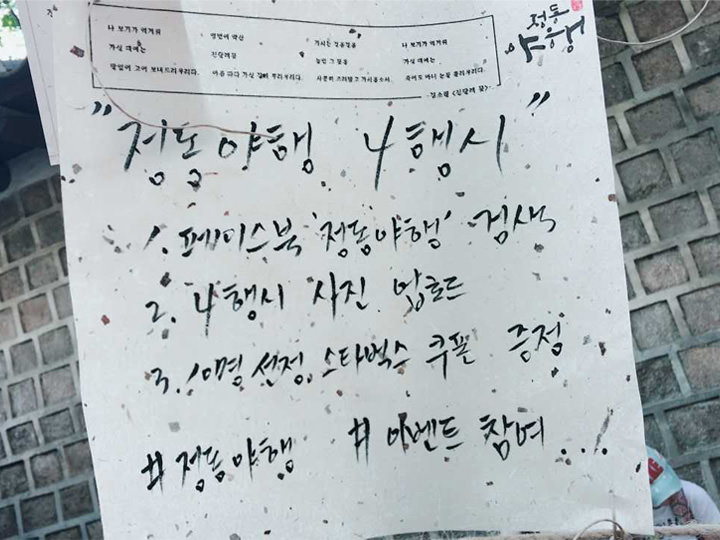 나 보기가 역겨워
가실 때에는
말없이 고이 보내드리우리다.
영변에 약산
진달래꽃
아름 따다 가실 길에 뿌리우리다.
가시는 걸음걸음
놓인 그 꽃을
사뿐히 즈려밟고 가시옵소서.
나 보기가 역겨워
가실 때에는
죽어도 아니 눈물 흘리우리다.
김소월 <진달래 꽃>
정동
야행
"정동야행 4행시"
1. 페이스북 '정동야행' 검색
2. 4행시 사진 업로드
3. 10명 선정, 스타벅스 쿠폰 증정
#정동야행 #이벤트 참여..!